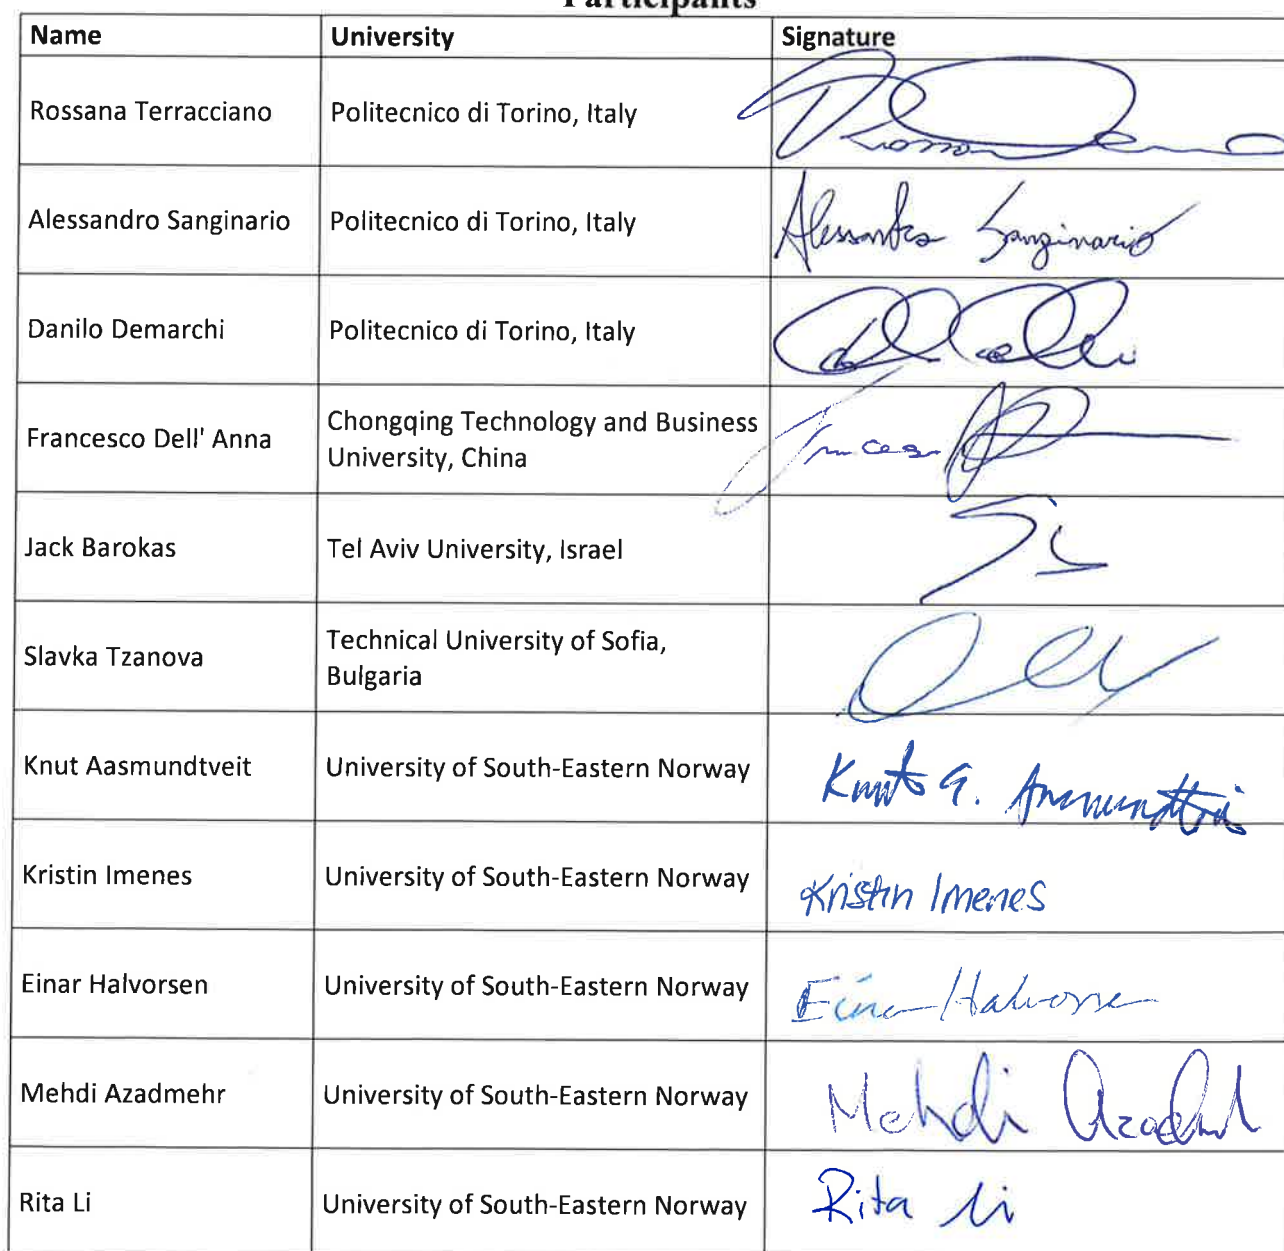 Participants
Name University Signature
Rossana Terracciano Politecnico di Torino, Italy
Alessandro Sanginario Politecnico di Torino, Italy Alessandro Sanginario
Danilo Demarchi Politecnico di Torino, Italy
Francesco Dell' Anna Chongqing Technology and Business
University, China
Jack Barokas Tel Aviv University, Israel
Slavka Tzanova Technical University of Sofia,
Bulgaria
Knut Aasmundtveit University of South-Eastern Norway Knut
Kristin Imenes University of South-Eastern Norway Kristin Imenes
Einar Halvorsen University of South-Eastern Norway Einar Halvorsen
Mehdi Azadmehr University of South-Eastern Norway Mehdi
Rita Li University of South-Eastern Norway Rita Li